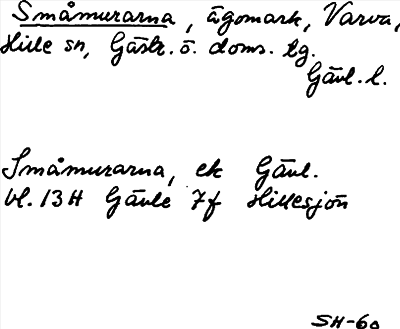 Småmurarna, ägomark, Varva,
Hille sn, Gästr. ö. doms. tg.
Gävl. l.
Småmurarna, ek Gävl.
bl. 13H Gävle 7f Hillesjön
SH-60